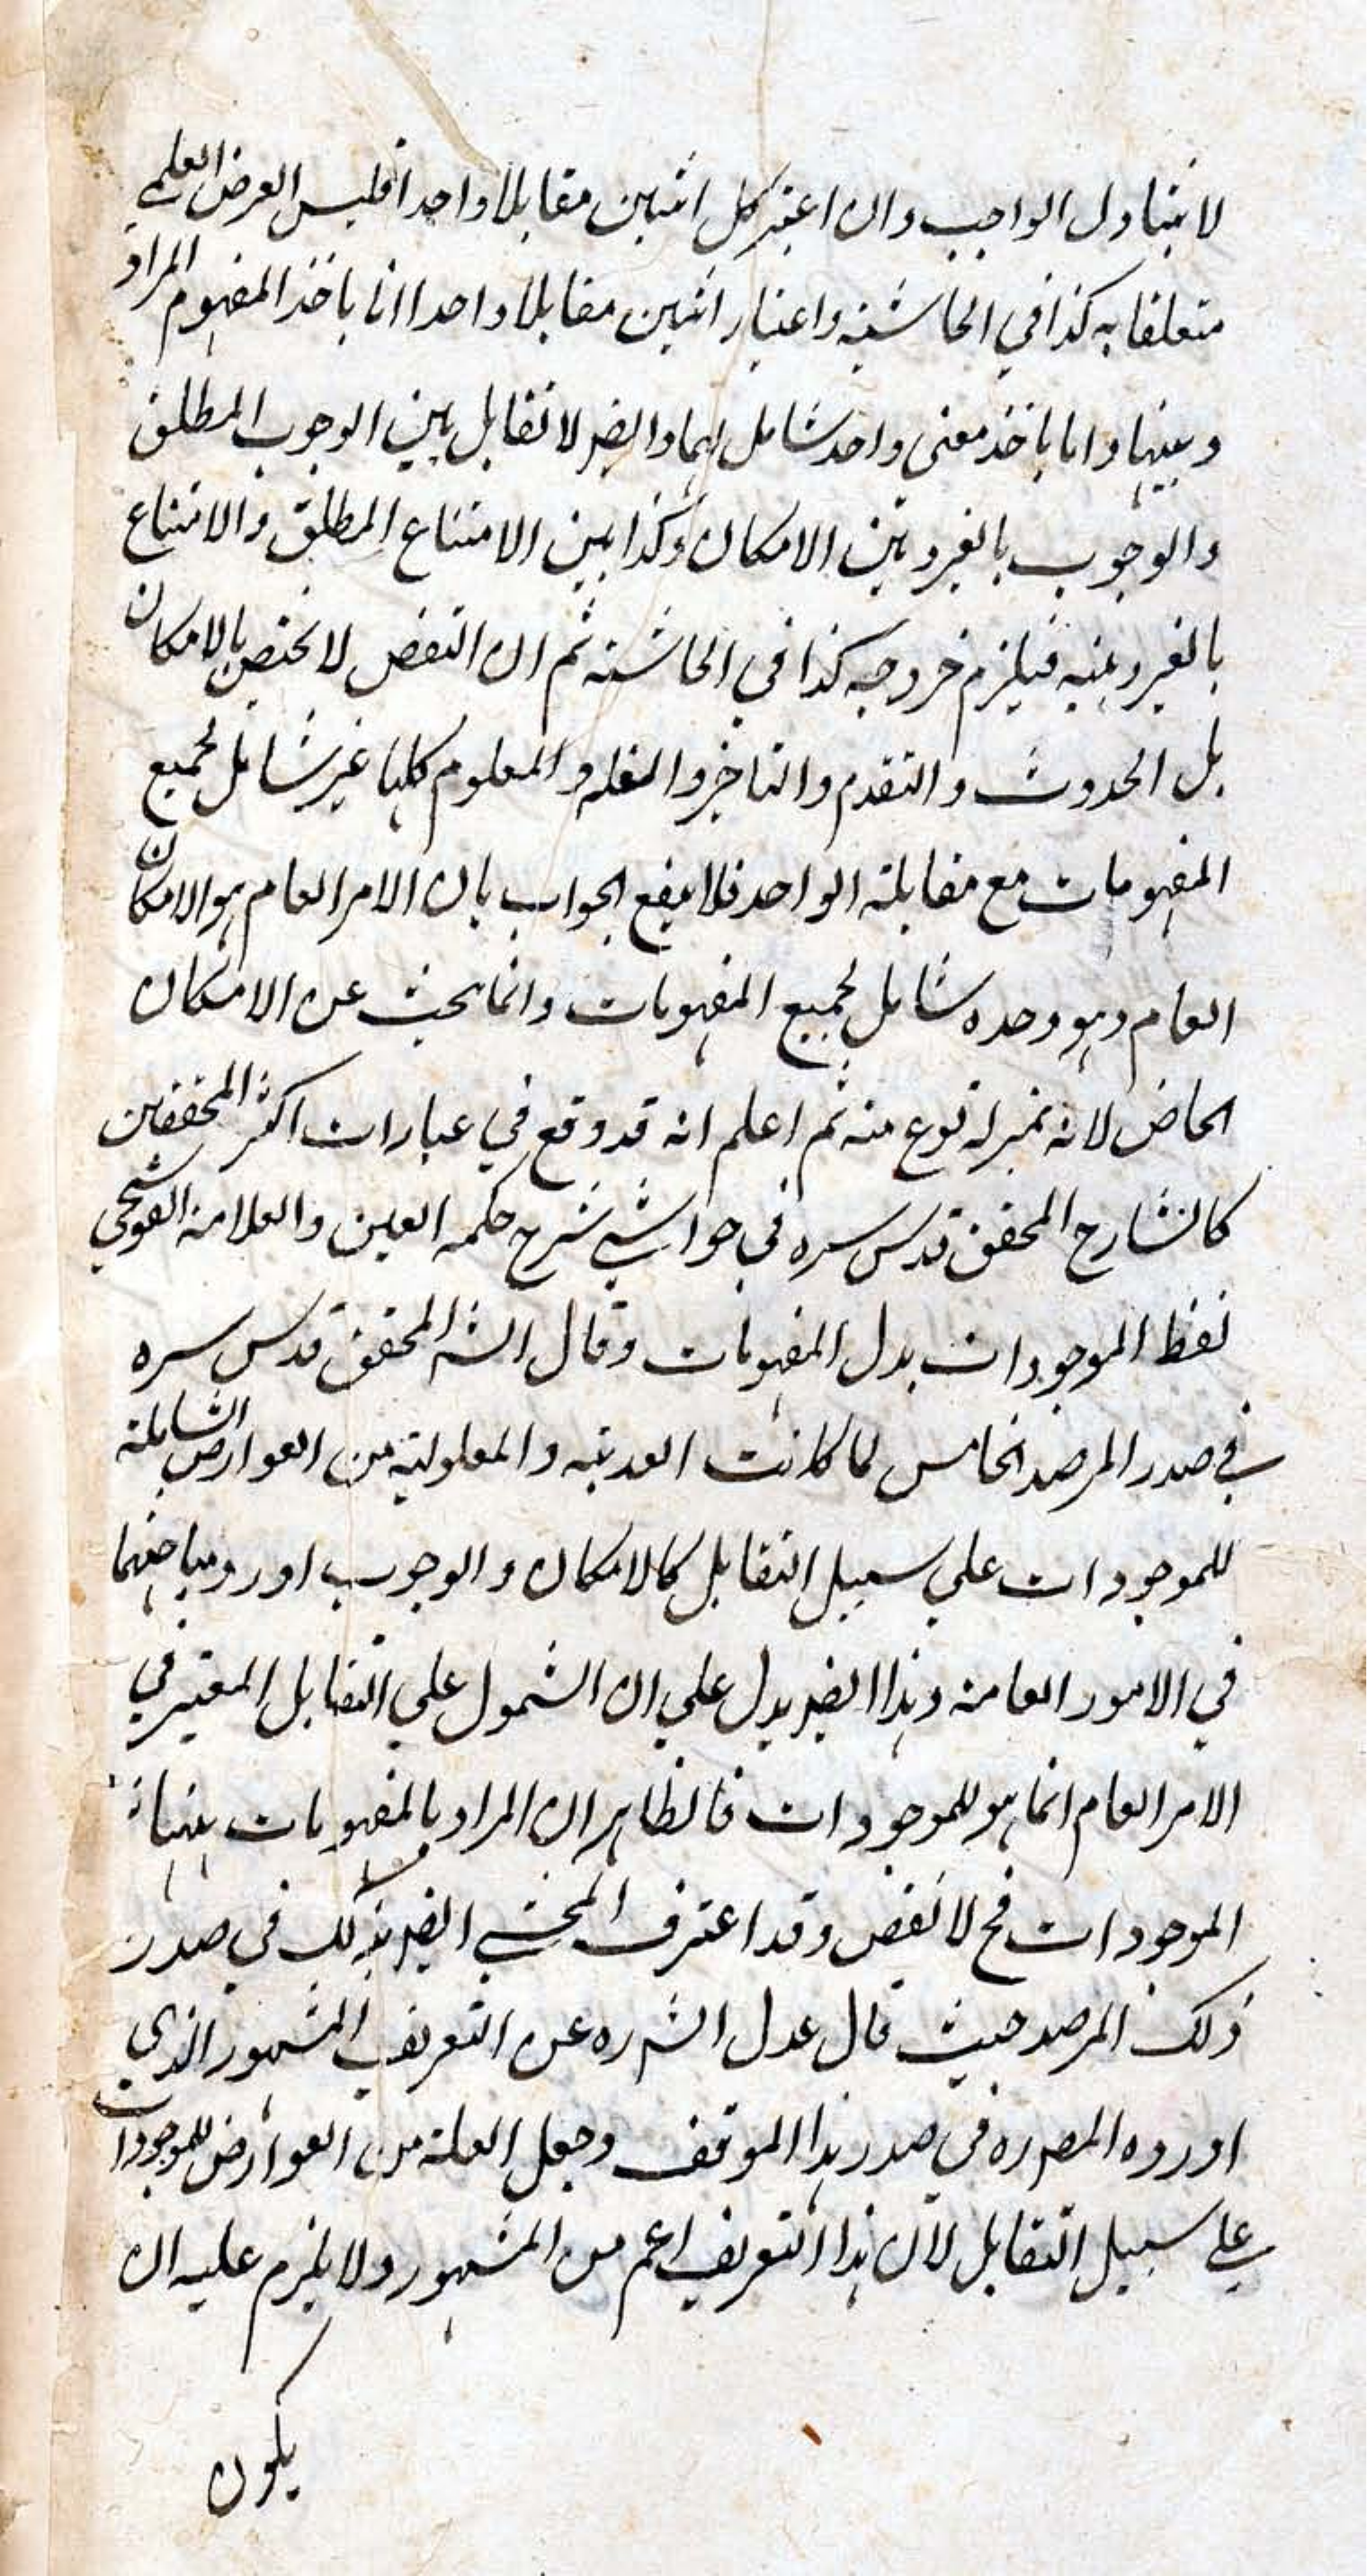 لا يتناول الواجب وان اعتبر كل اثنين مقابلا واحدا فليس الغرض العلمي
متعلقا به كذا في الحاشية واعتبار اثنين مقابلا واحدا اما باخذ المفهوم المراد
وبينها واما باخذ معنى واحد شامل لهما وايضا لا تقابل بين الوجوب المطلق
والوجوب بالغير وبين الامكان وكذا بين الامتناع المطلق والامتناع
بالغير وبينه فيلزم خروجه كذا في الحاشية ثم ان النقض لا يختص بالامكان
بل الحدوث والتقدم والتاخر والعلة والمعلوم كلها غير شامل لجميع
المفهومات مع مقابلة الواحد فلا ينفع الجواب بان الامر العام هو الامكان
العام وهو وحده شامل لجميع المفهومات وانما بحث عن الامكان
الخاص لانه بمنزلة نوع منه ثم اعلم انه قد وقع في عبارات اكثر المحققين
كالشارح المحقق قدس سره في حواشي شرح حكمة العين والعلامة القوشجي
لفظ الموجودات بدل المفهومات وقال الش المحقق قدس سره
في صدر المرصد الخامس لما كانت العلية والمعلولية من العوارض الشاملة
للموجودات علي سبيل التقابل كالامكان والوجوب اورد مباحثهما
في الامور العامة وهذا ايضا يدل علي ان الشمول علي التقابل المعتبر في
الامر العام انما هو للموجودات فالظاهر ان المراد بالمفهومات ههنا
الموجودات فح لا نقض وقد اعترف المحشي ايضا بذلك في صدر
ذلك المرصد حيث قال عدل الش ره عن التعريف المشهور الذي
اورده المص ره في صدر هذا الموقف وجعل العلة من العوارض للموجودات
علي سبيل التقابل لان هذا التعريف اعم من المشهور ولا يلزم عليه ان
يكون